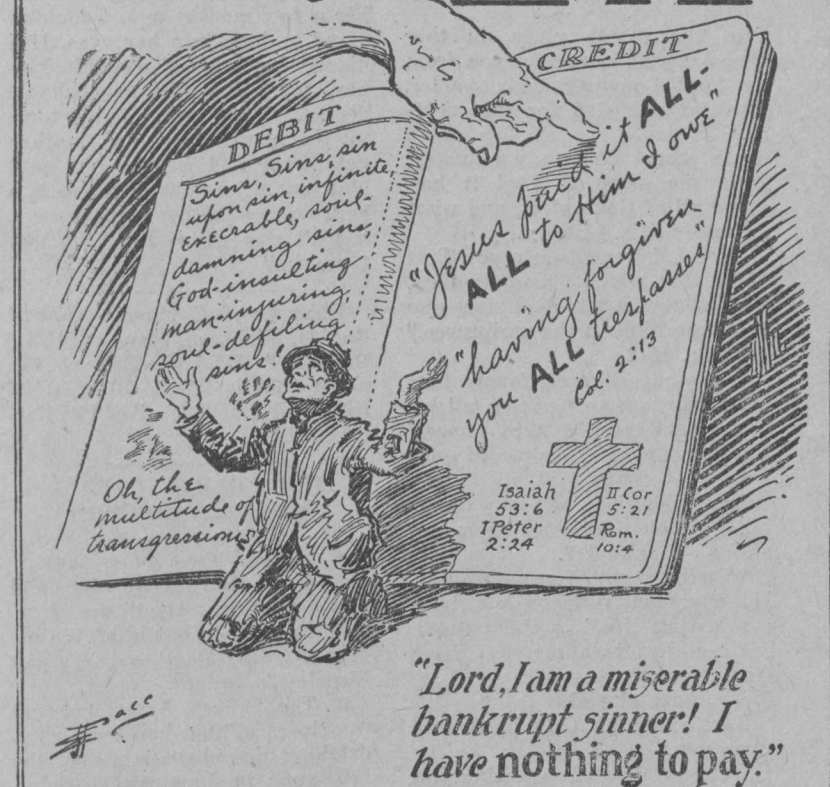 DEBIT
Sins, Sins, sin
upon sin, infinite,
execrable, soul-
damning sins,
God-insulting
man-injuring,
soul-defiling
sins!
Oh, the
multitude of
transgressions
CREDIT
"Jesus paid it ALL-
ALL to Him I owe"
"having forgiven
you ALL trespasses"
Col. 2:13
Isaiah
53:6
I Peter
2:24
II Cor
5:21
Rom.
10:4
"Lord, I am a miserable
bankrupt sinner! I
have nothing to pay."